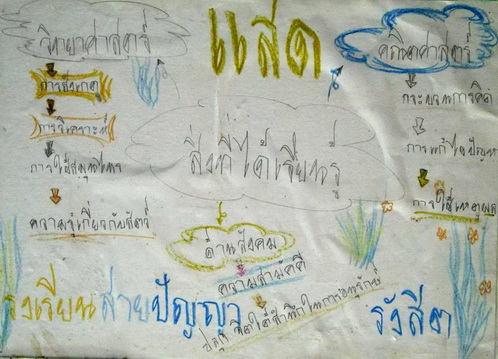 แสด
วิทยาศาสตร์
คณิตศาสตร์
สิ่งที่ได้เรียนรู้
การสังเกต
การวิเคราะห์
การใช้สมุนไพร
ความรู้เกี่ยวกับสัตว์
กระบวนการคิด
การแก้ไขปัญหา
การใช้เหตุผล
ด้านสังคม
ความสามัคคี
ปลูกจิตใต้สำนึกในการอนุรักษ์
โรงเรียนสายปัญญา รังสิต